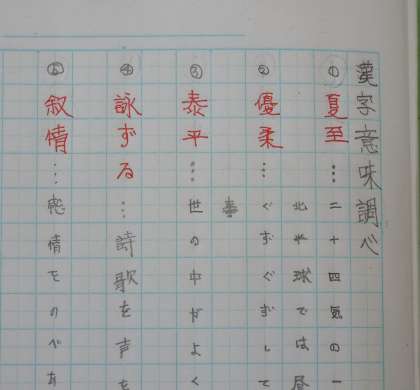 漢字意味調べ
①夏至…二十四気の一
北半球では昼
②優柔…ぐずぐずして
③泰平…世の中がよく
④詠ずる…詩歌を声を
⑤叙情…感情をのべあ